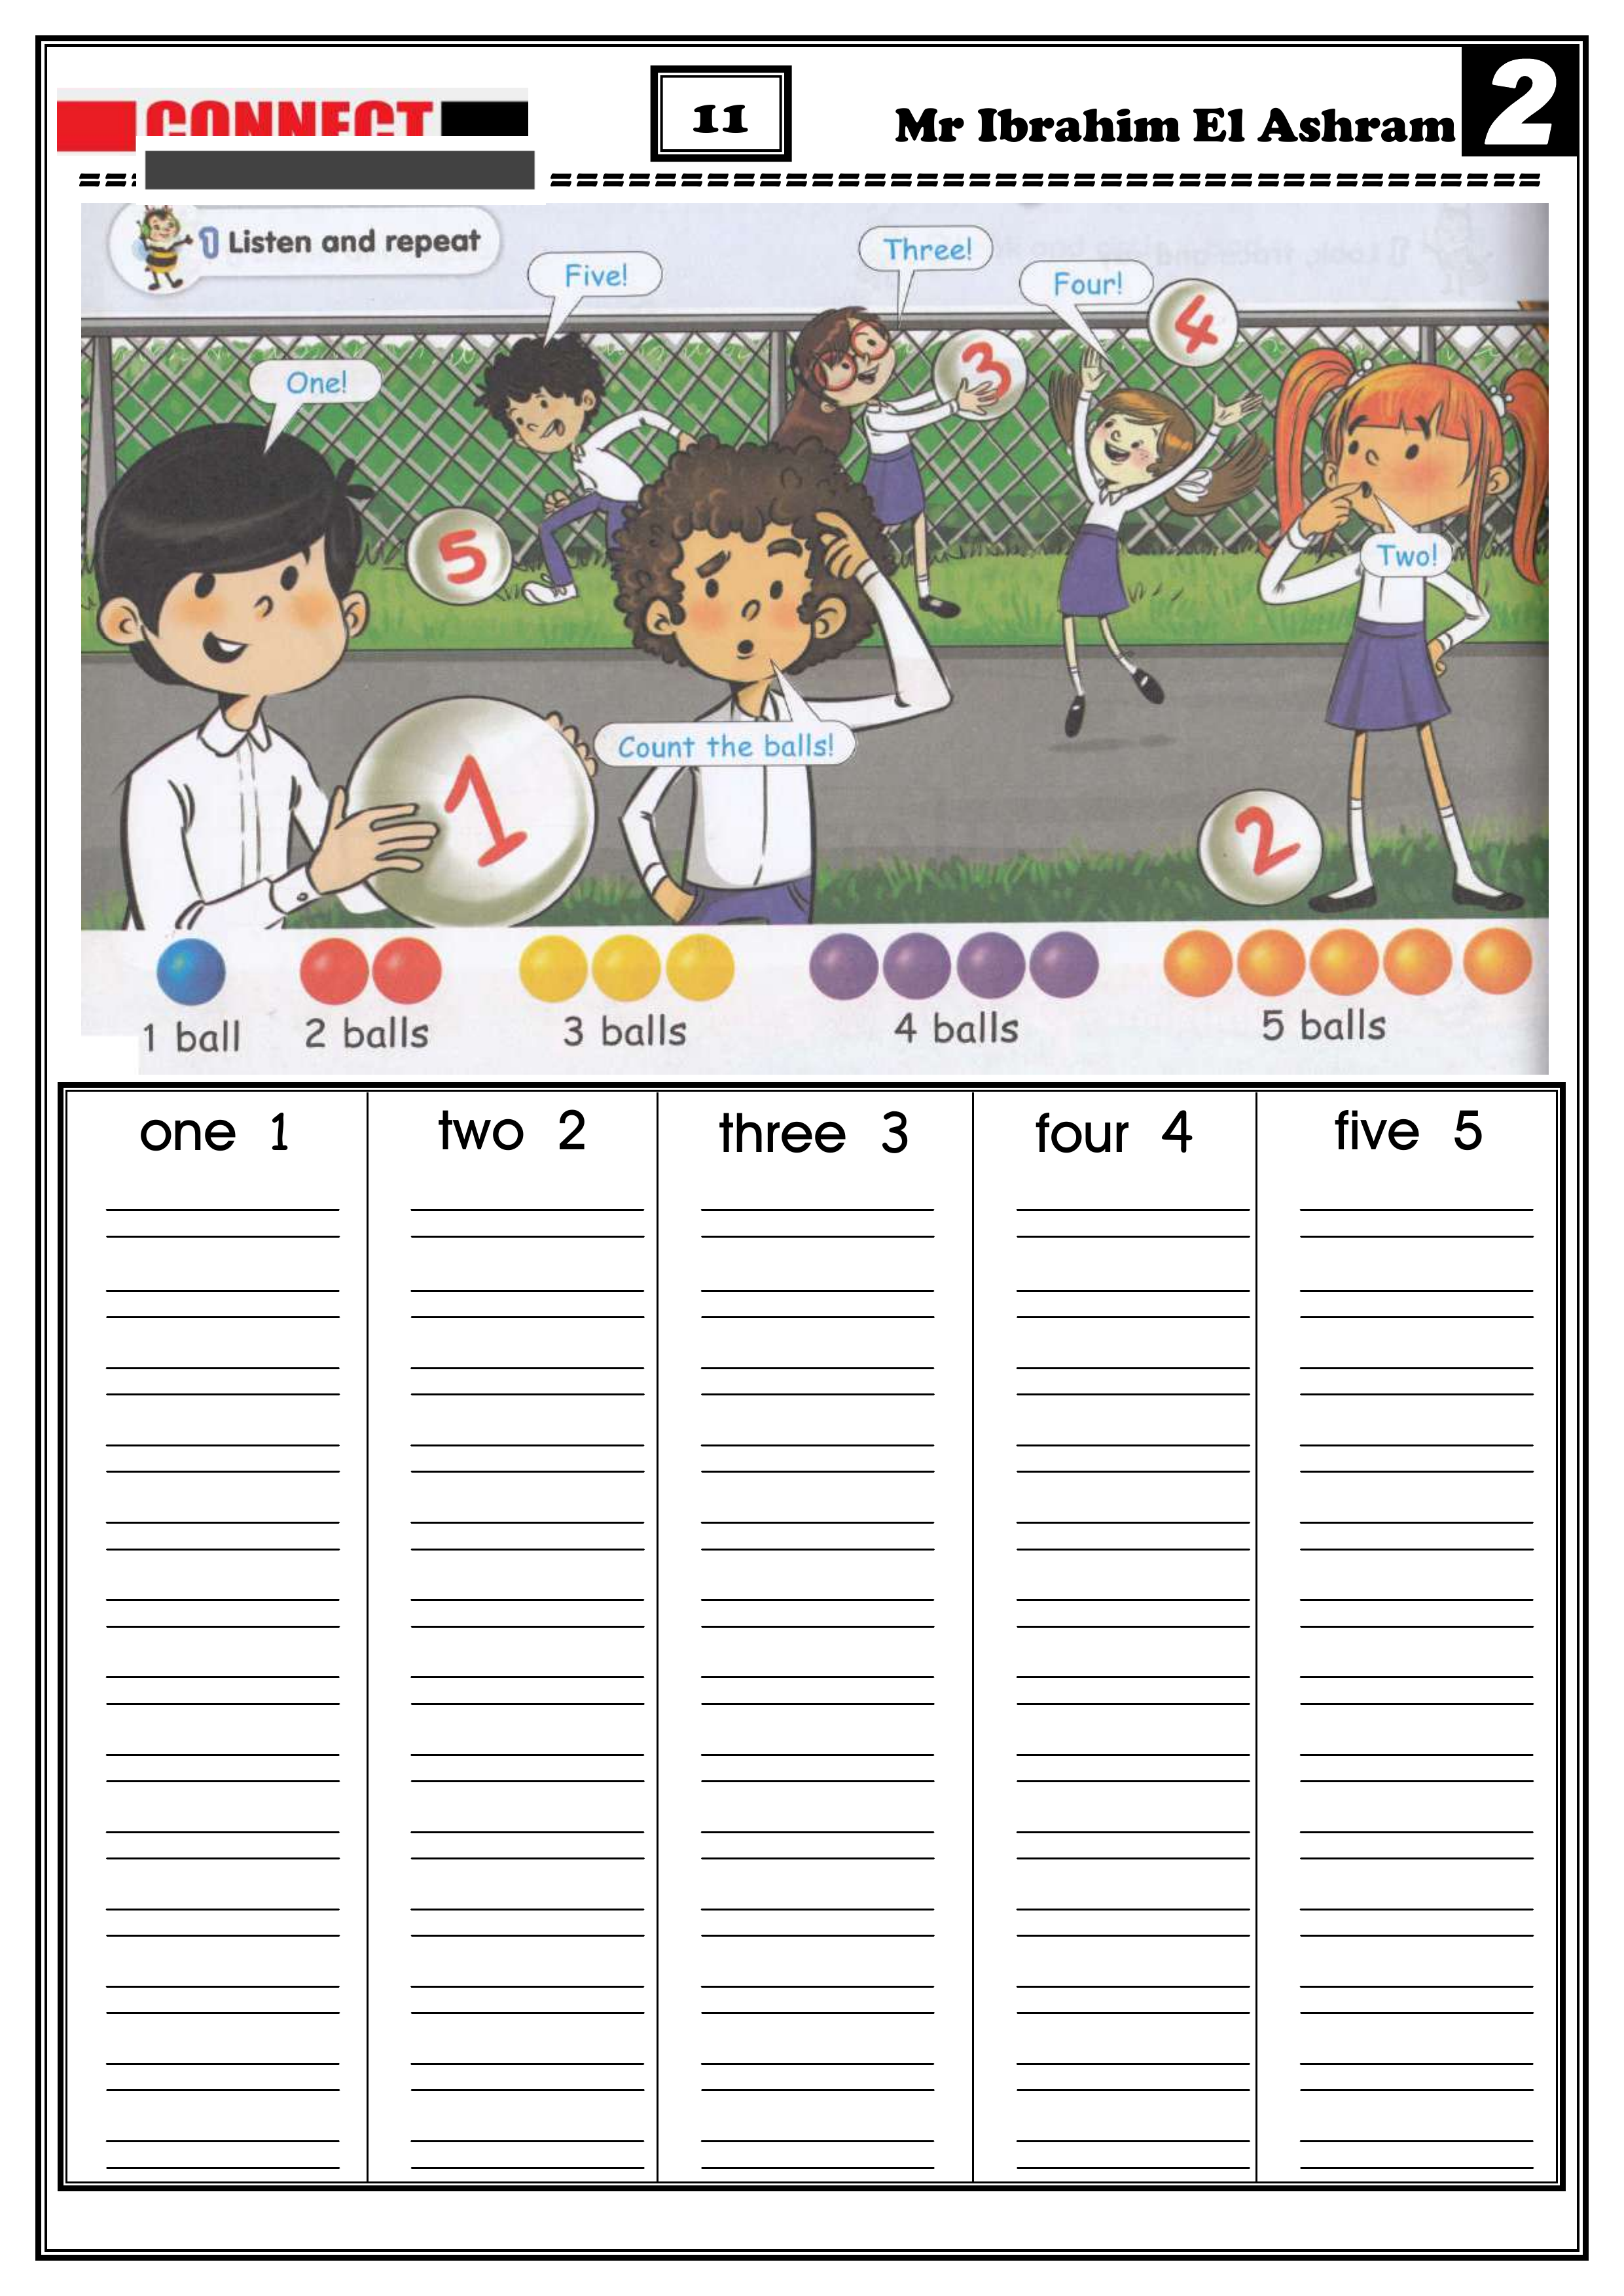 CONNECT
11
Mr Ibrahim El Ashram
2
============================================
1 Listen and repeat
Five!
Three!
Four!
4
One!
3
5
Two!
Count the balls!
1
2
1 ball 2 balls 3 balls 4 balls 5 balls
one 1 two 2 three 3 four 4 five 5